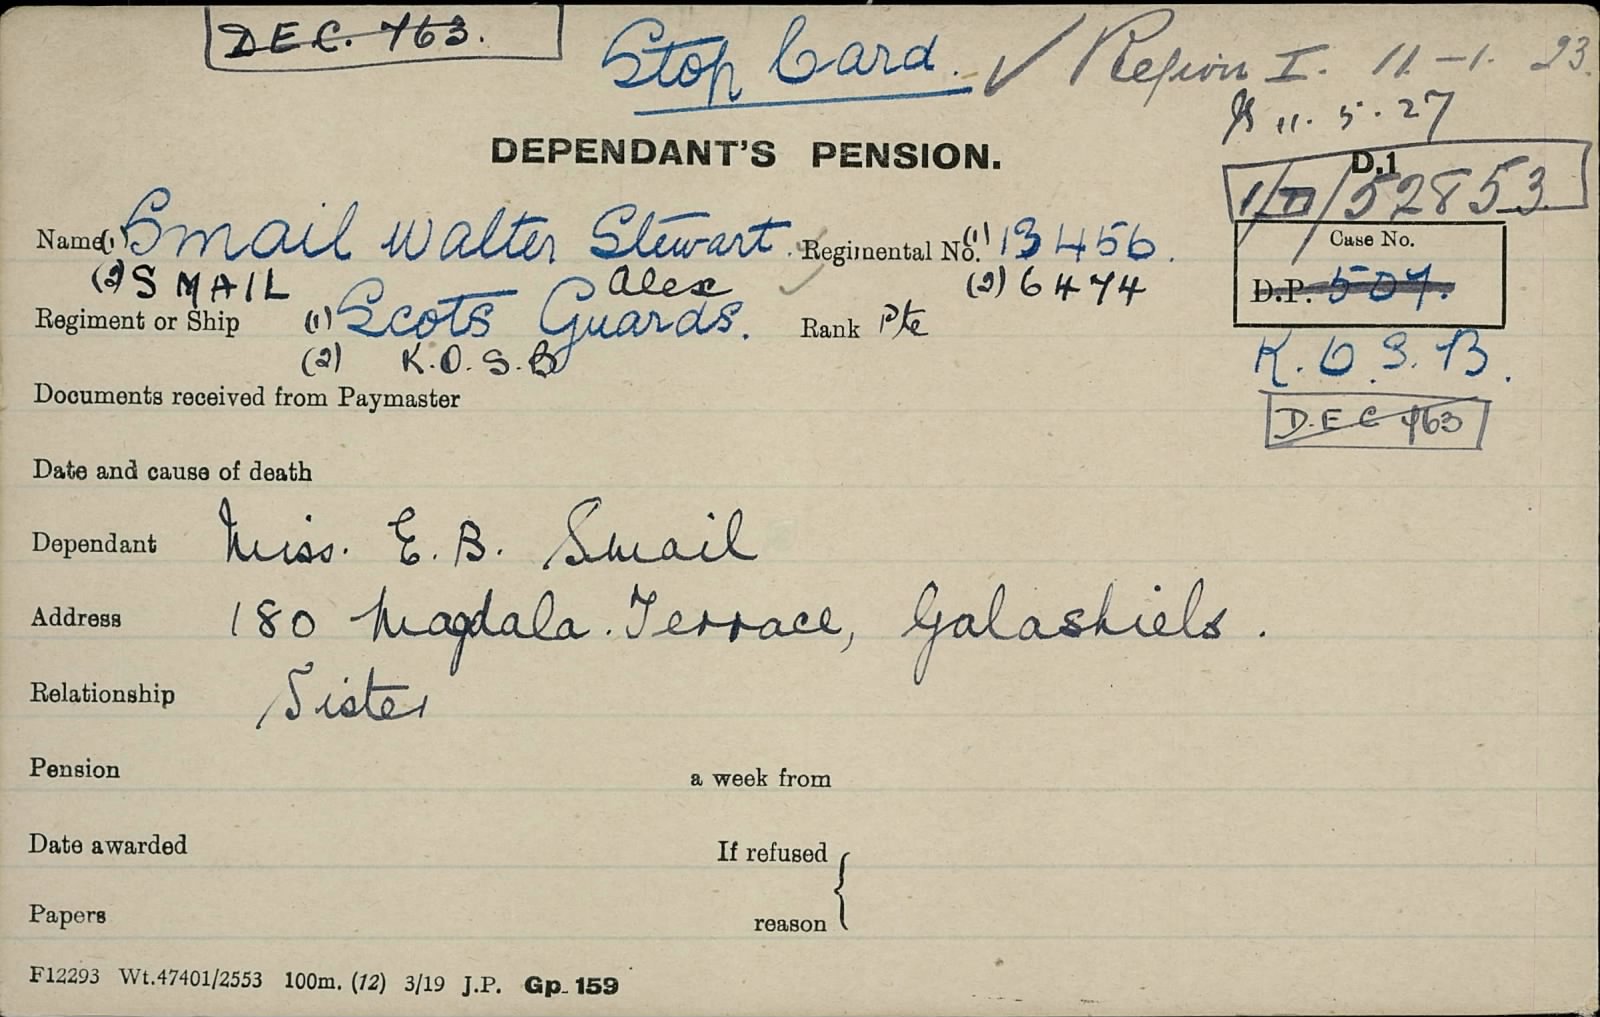 DEC. 763.
Stop Card. ✓ Region I. 11-1. 23.
11. 5. 27
DEPENDANT'S PENSION.
D.1
1/D/52853
Name (1) Smail Walter Stewart. Regimental No. (1) 13456.
Case No.
(2) SMAIL Alex (2) 6474
D.P. 507.
Regiment or Ship (1) Scots Guards. Rank Pte
(2) K.O.S.B
K.O.S.B.
Documents received from Paymaster
DEC 763
Date and cause of death
Dependant Miss. E. B. Smail
Address 180 Magdala. Terrace, Galashiels.
Relationship Sister
Pension a week from
Date awarded If refused
Papers reason
F12293 Wt.47401/2553 100m. (12) 3/19 J.P. Gp. 159